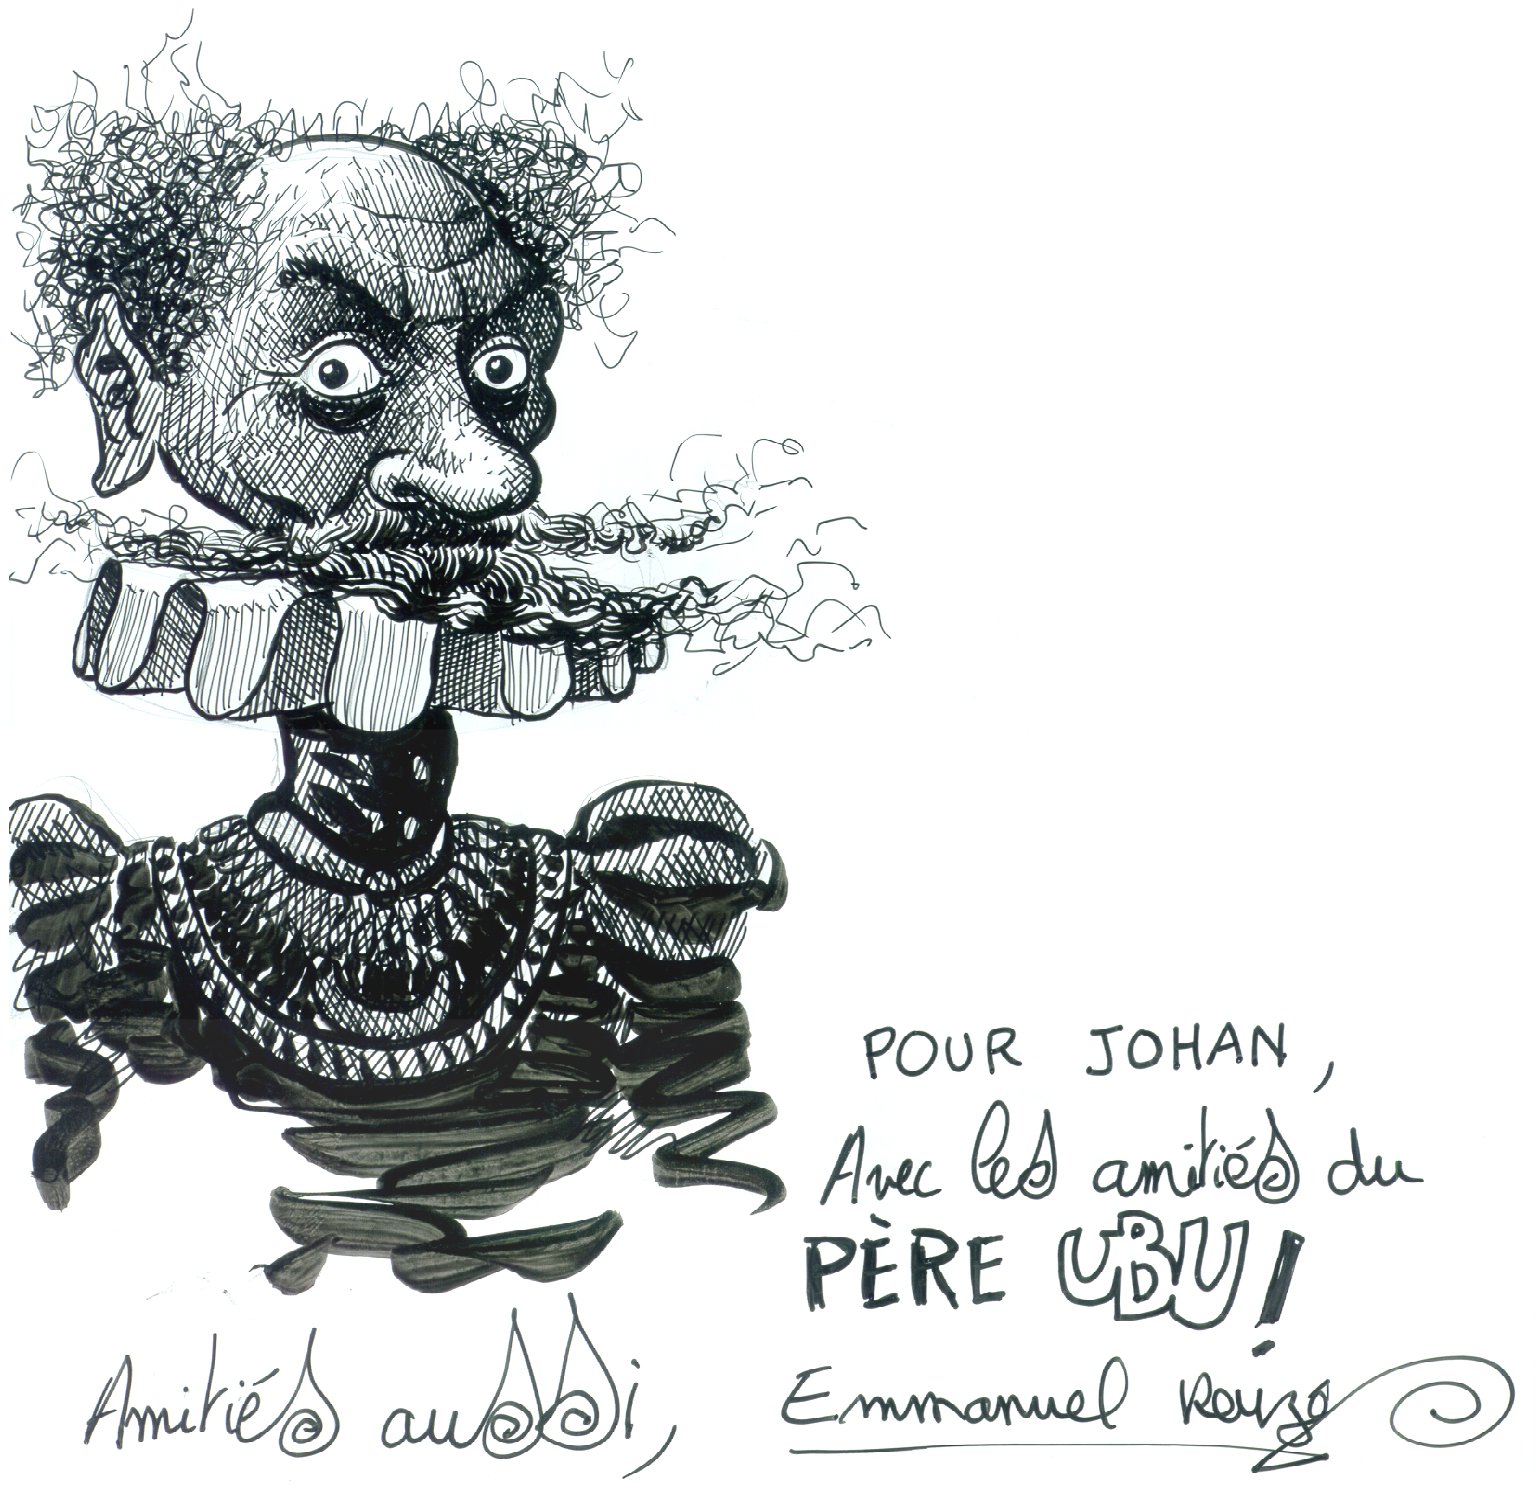 POUR JOHAN,
Avec les amitiés du
PÈRE UBU!
Amitiés aussi,
Emmanuel Reuzé